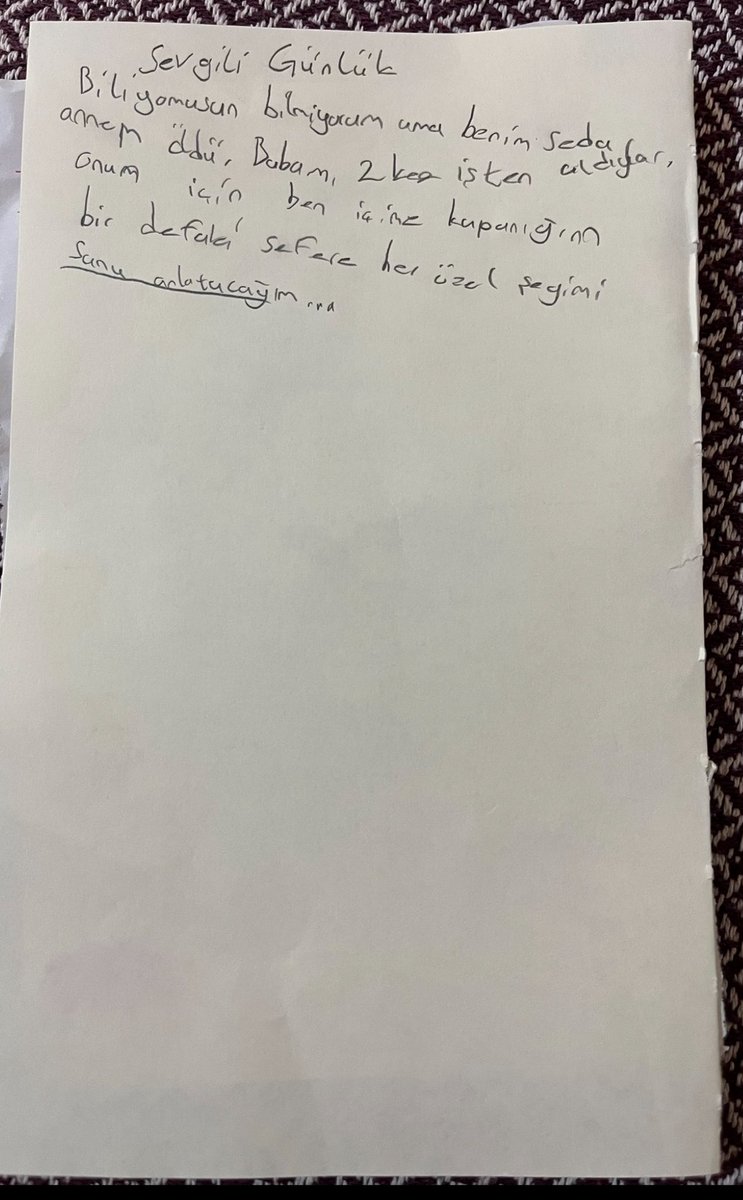 Sevgili Günlük
Biliyomusun bilmiyorum ama benim Seda
annem öldü. Babamı 2 kez işten aldılar.
Onum için ben içine kapanığım
bir defaki sefere her özel şeyimi
Sana anlatacağım...